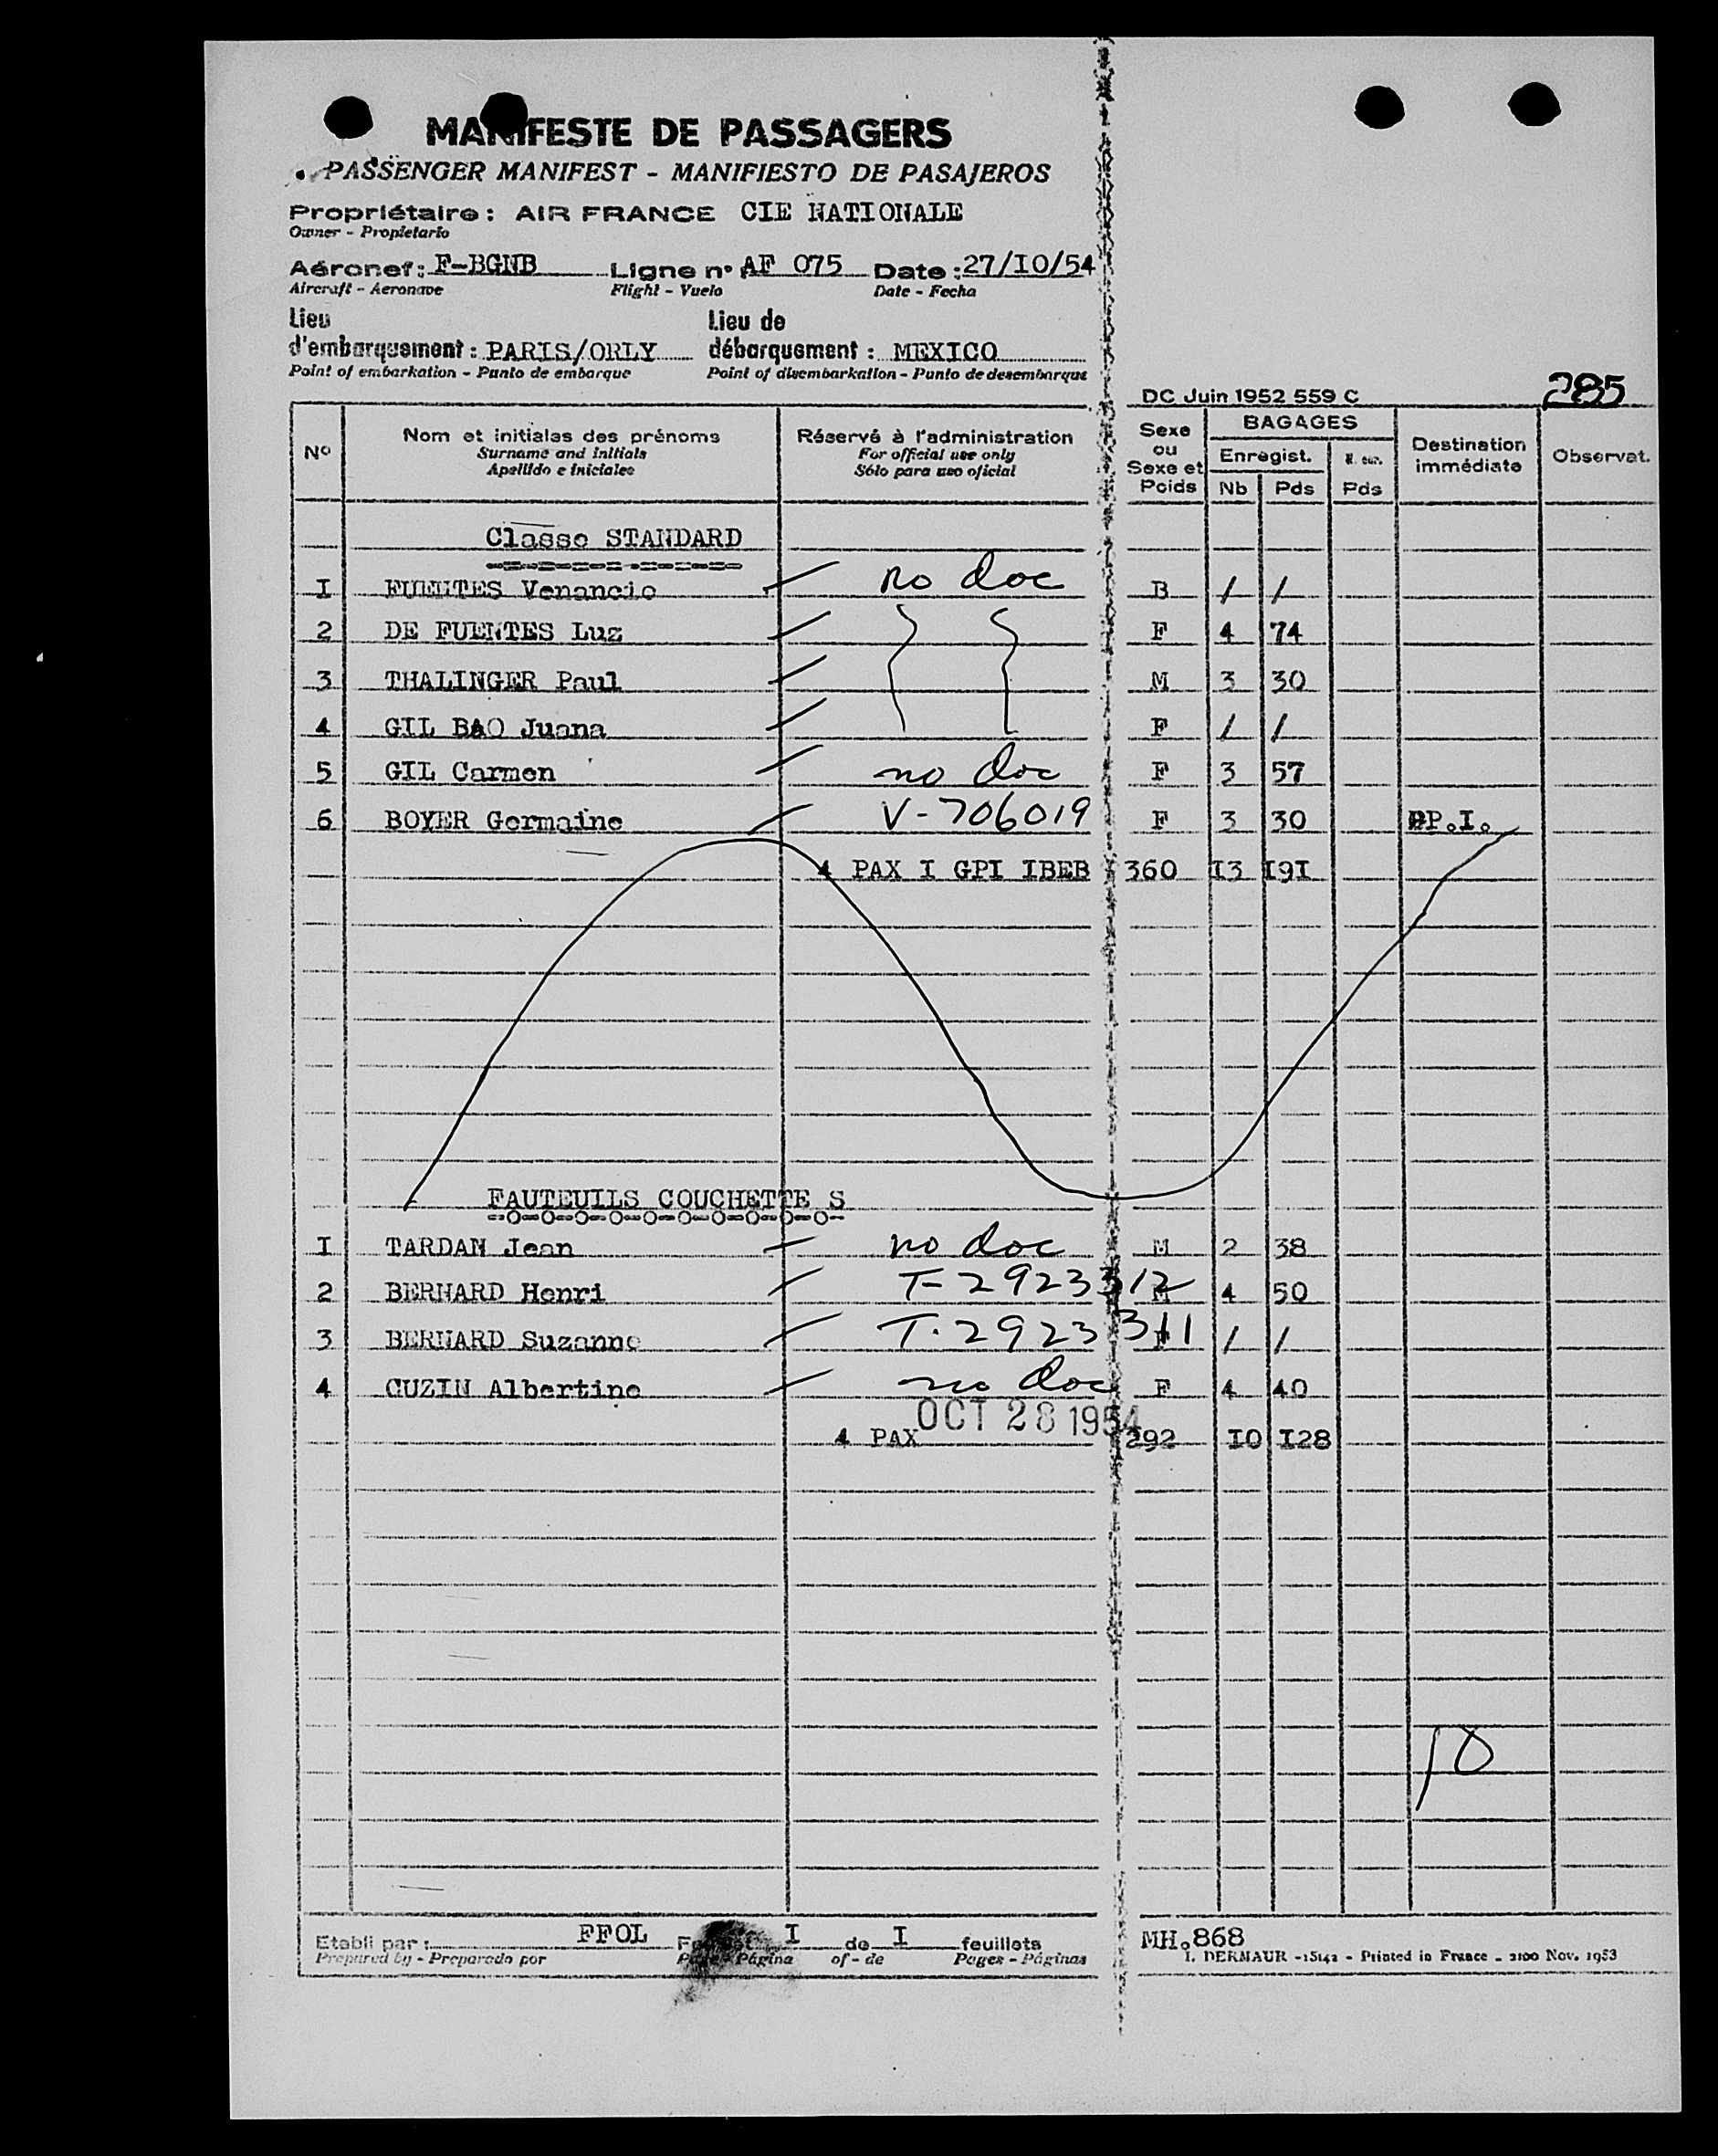 MANIFESTE DE PASSAGERS
PASSENGER MANIFEST - MANIFIESTO DE PASAJEROS
Propriétaire : AIR FRANCE CIE NATIONALE
Owner - Propietario
Aéronef : F-BGNB Ligne n° AF 075 Date : 27/IO/54
Aircraft - Aeronave Flight - Vuelo Date - Fecha
Lieu d'embarquement : PARIS/ORLY Lieu de débarquement : MEXICO
Point of embarkation - Punto de embarque Point of disembarkation - Punto de desembarque
DC Juin 1952 559 C 285
N° Nom et initiales des prénoms Réservé à l'administration Sexe ou Sexe et Poids BAGAGES Destination immédiate Observat.
Surname and Initials For official use only Enregist.
Apellido e iniciales Sólo para uso oficial Nb Pds Pds
Classe STANDARD
I FUENTES Venancio no doc B / /
2 DE FUENTES Luz F 4 74
3 THALINGER Paul M 3 30
4 GIL BAO Juana F / /
5 GIL Carmen no doc F 3 57
6 BOYER Germaine V-706019 F 3 30 PP.I.
4 PAX I GPI IBEB 360 I3 I9I
FAUTEUILS COUCHETTE S
I TARDAN Jean no doc M 2 38
2 BERNARD Henri T-2923312 M 4 50
3 BERNARD Suzanne T.2923311 F / /
4 CUZIN Albertine no doc F 4 40
OCT 28 1954
4 PAX 292 IO I28
10
Etabli par : FFOL I de I feuillets MH.868
Prepared by - Preparado por Página of - de Pages - Páginas I. DERMAUR - 15142 - Printed in France - 2100 Nov. 1953